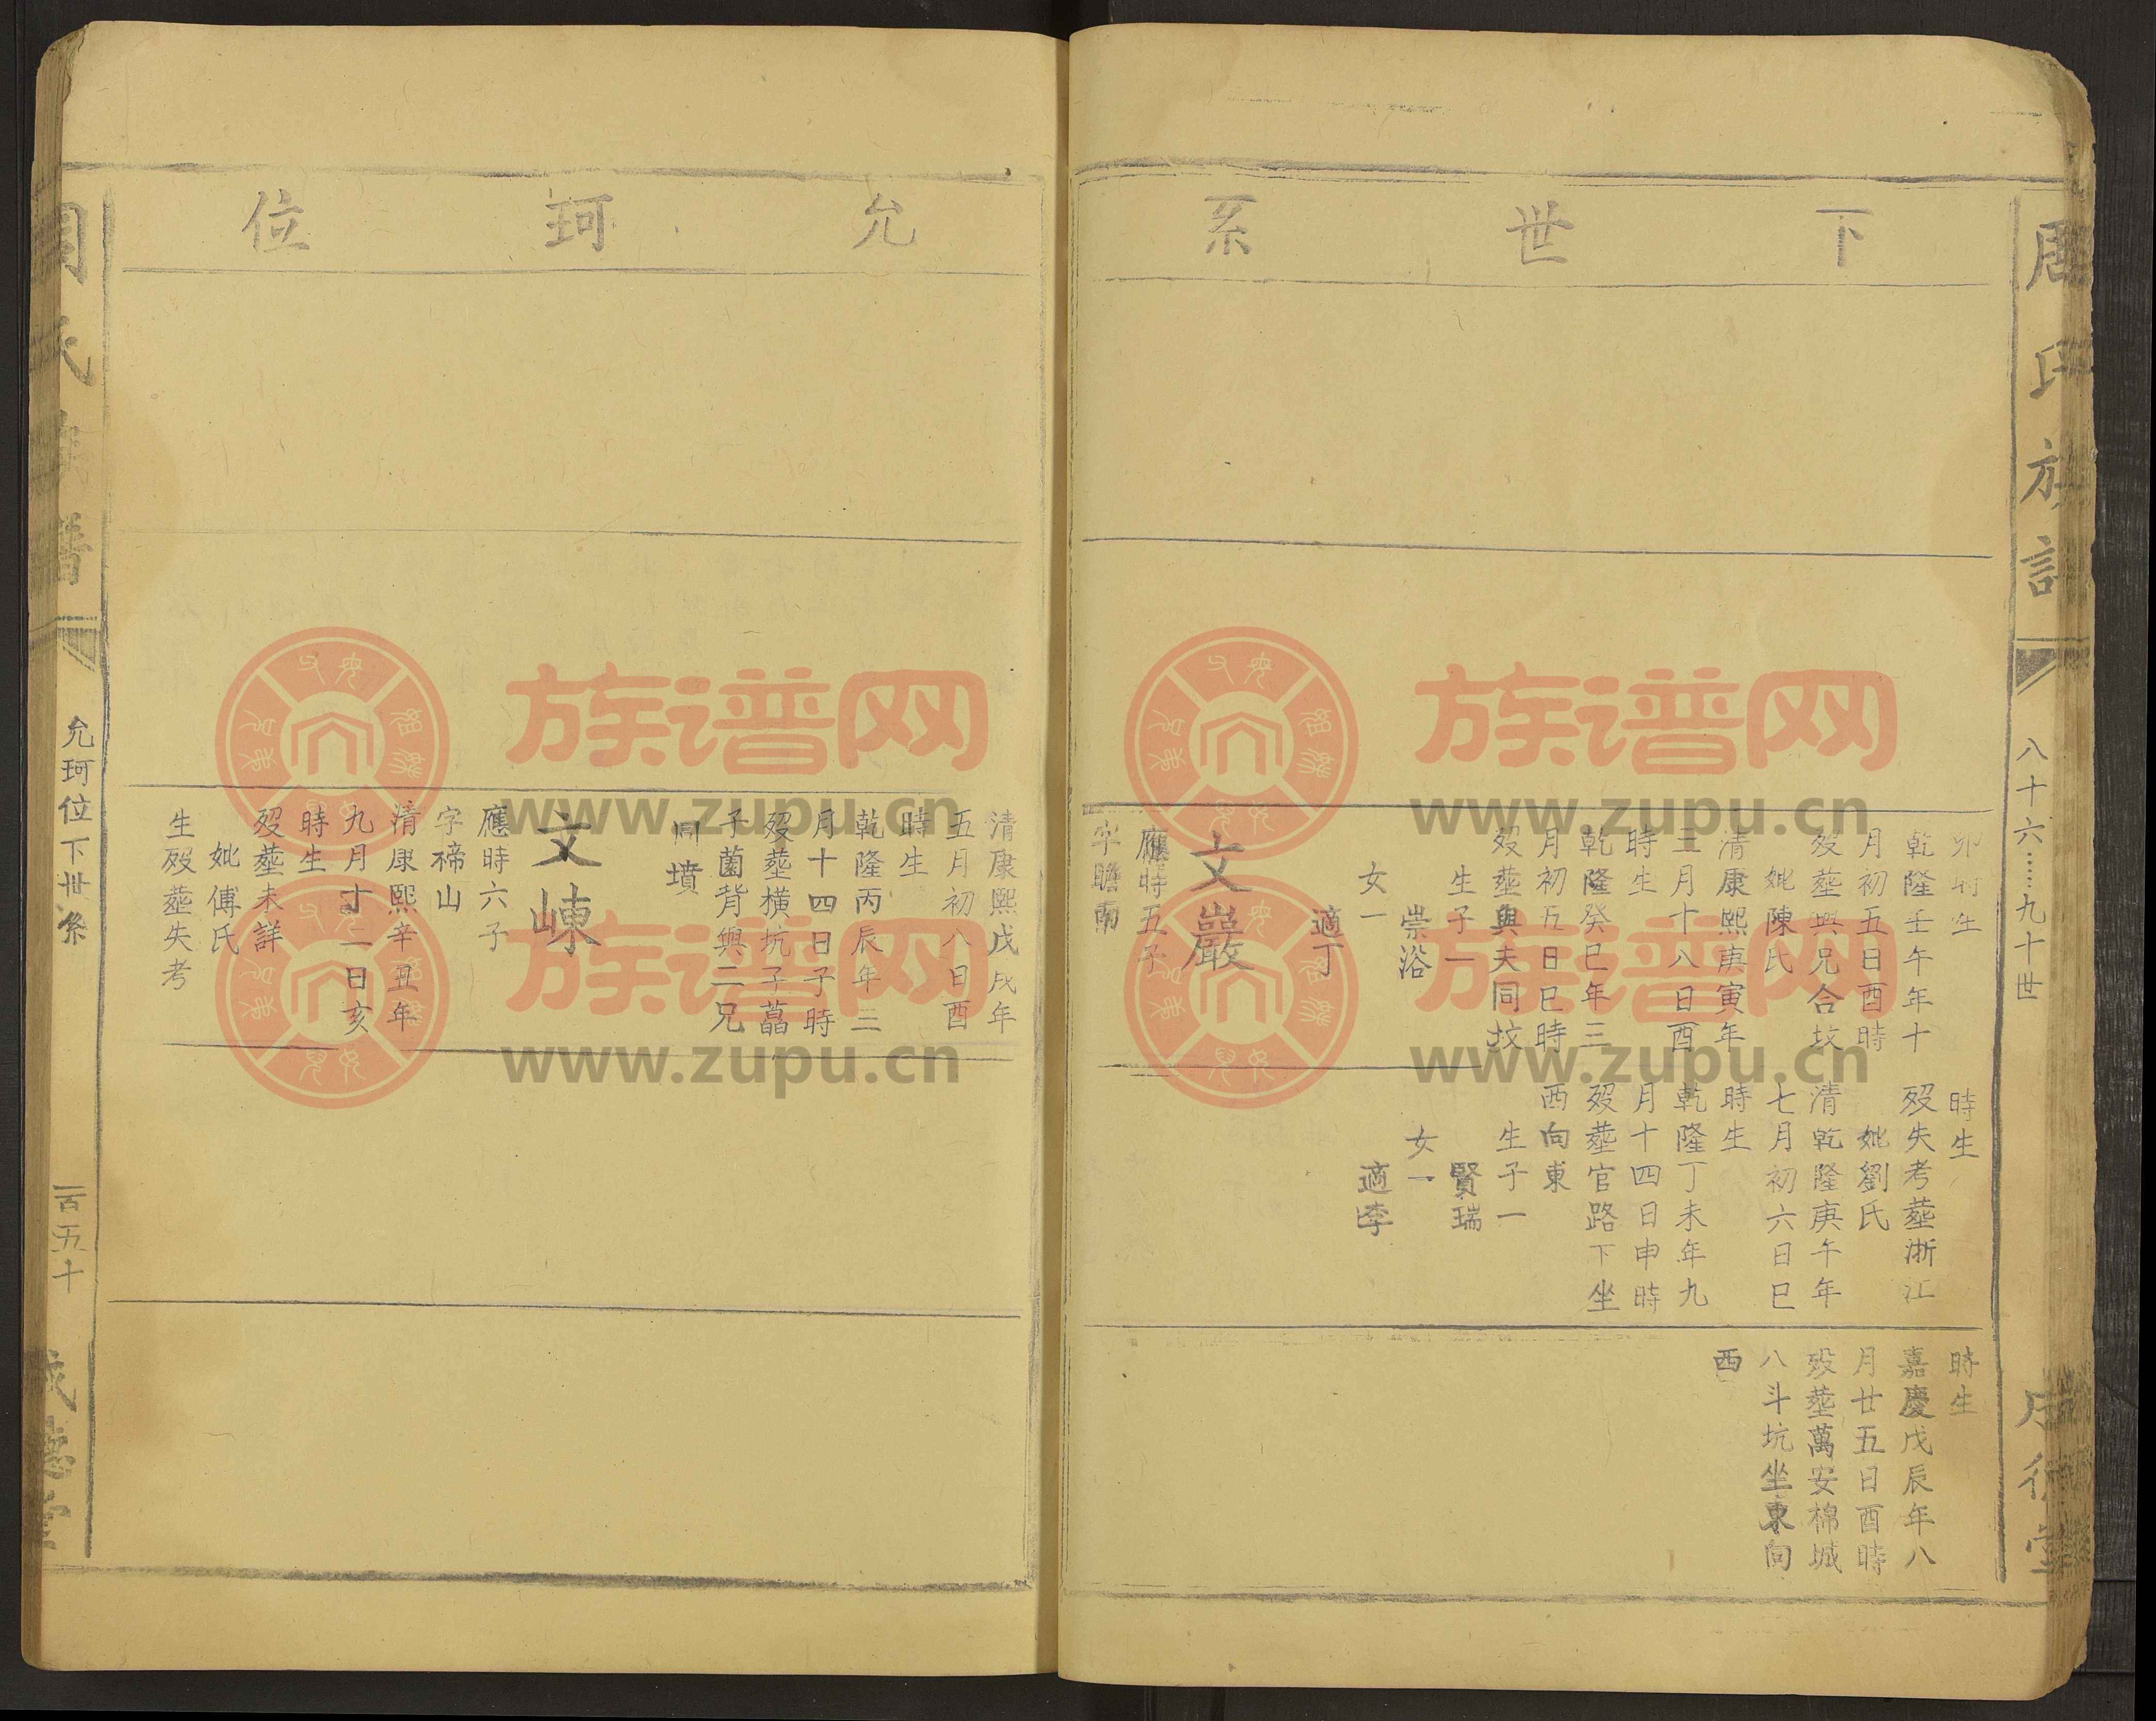 周氏族譜
八十六……九十世
下世系
卯時生
乾隆壬午年十
月初五日酉時
歿塟與兄合坟
妣陳氏
清康熙庚寅年
三月十八日酉
時生
乾隆癸巳年三
月初五日巳時
歿塟與夫同坟
生子一
崇浴
女一
適丁
文巖
應時五子
字瞻南
時生
歿失考塟浙江
妣劉氏
清乾隆庚午年
七月初六日巳
時生
乾隆丁未年九
月十四日申時
歿塟官路下坐
西向東
生子一
賢瑞
女一
適李
時生
嘉慶戊辰年八
月廿五日酉時
歿塟萬安棉城
八斗坑坐東向
西
允珂位
清康熙戊戌年
五月初八日酉
時生
乾隆丙辰年三
月十四日子時
歿塟橫坑子萵
子薗背與二兄
同墳
文崠
應時六子
字樀山
清康熙辛丑年
九月十二日亥
時生
歿塟未詳
妣傅氏
生歿塟失考
周氏族譜
允珂位下世系
一百五十
成德堂
族谱网
www.zupu.cn
族谱网
www.zupu.cn
族谱网
www.zupu.cn
族谱网
www.zupu.cn